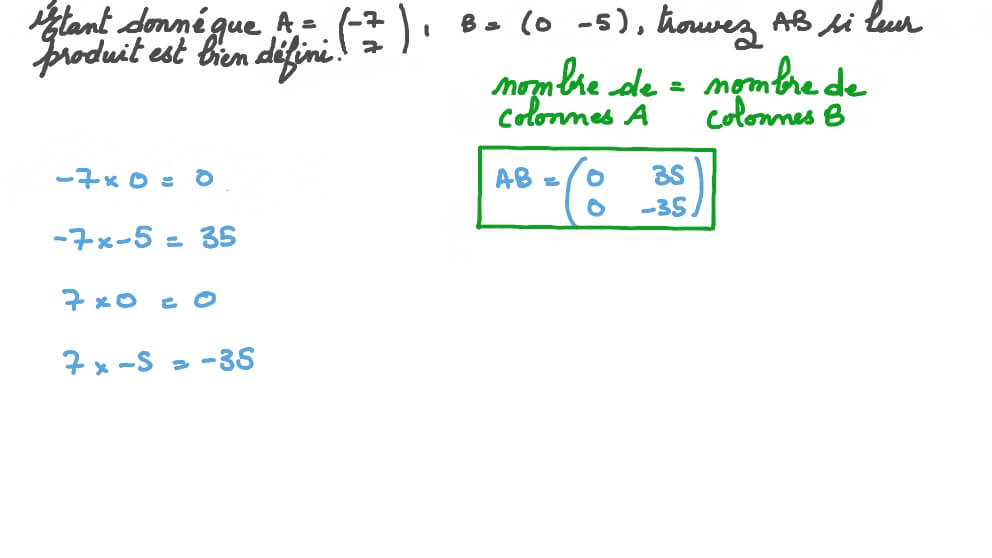 Étant donné que A = (-7 7), B = (0 -5), trouvez AB si leur
produit est bien défini.
nombre de = nombre de
colonnes A colonnes B
-7 × 0 = 0
-7 × -5 = 35
7 × 0 = 0
7 × -5 = -35
AB = (0 35
0 -35)